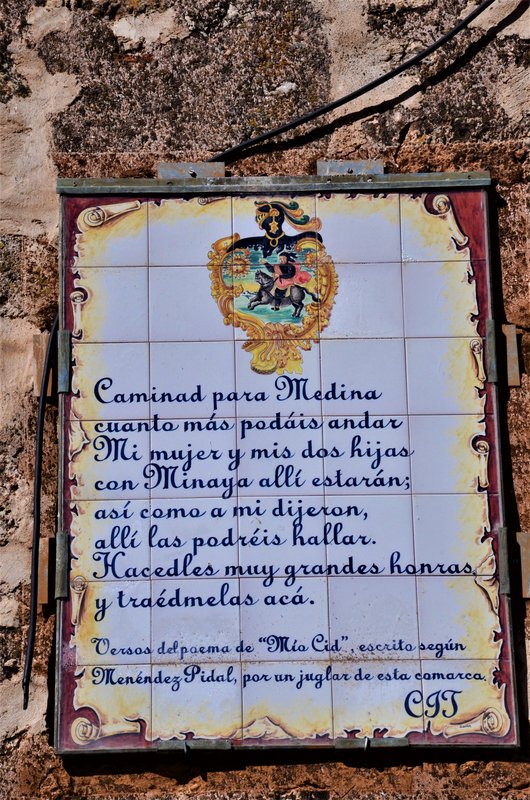 Caminad para Medina
cuanto más podáis andar
Mi mujer y mis dos hijas
con Minaya allí estarán;
así como a mi dijeron,
allí las podréis hallar.
Hacedles muy grandes honras
y traédmelas acá.
Versos del poema de "Mío Cid", escrito según
Menéndez Pidal, por un juglar de esta comarca.
CIT